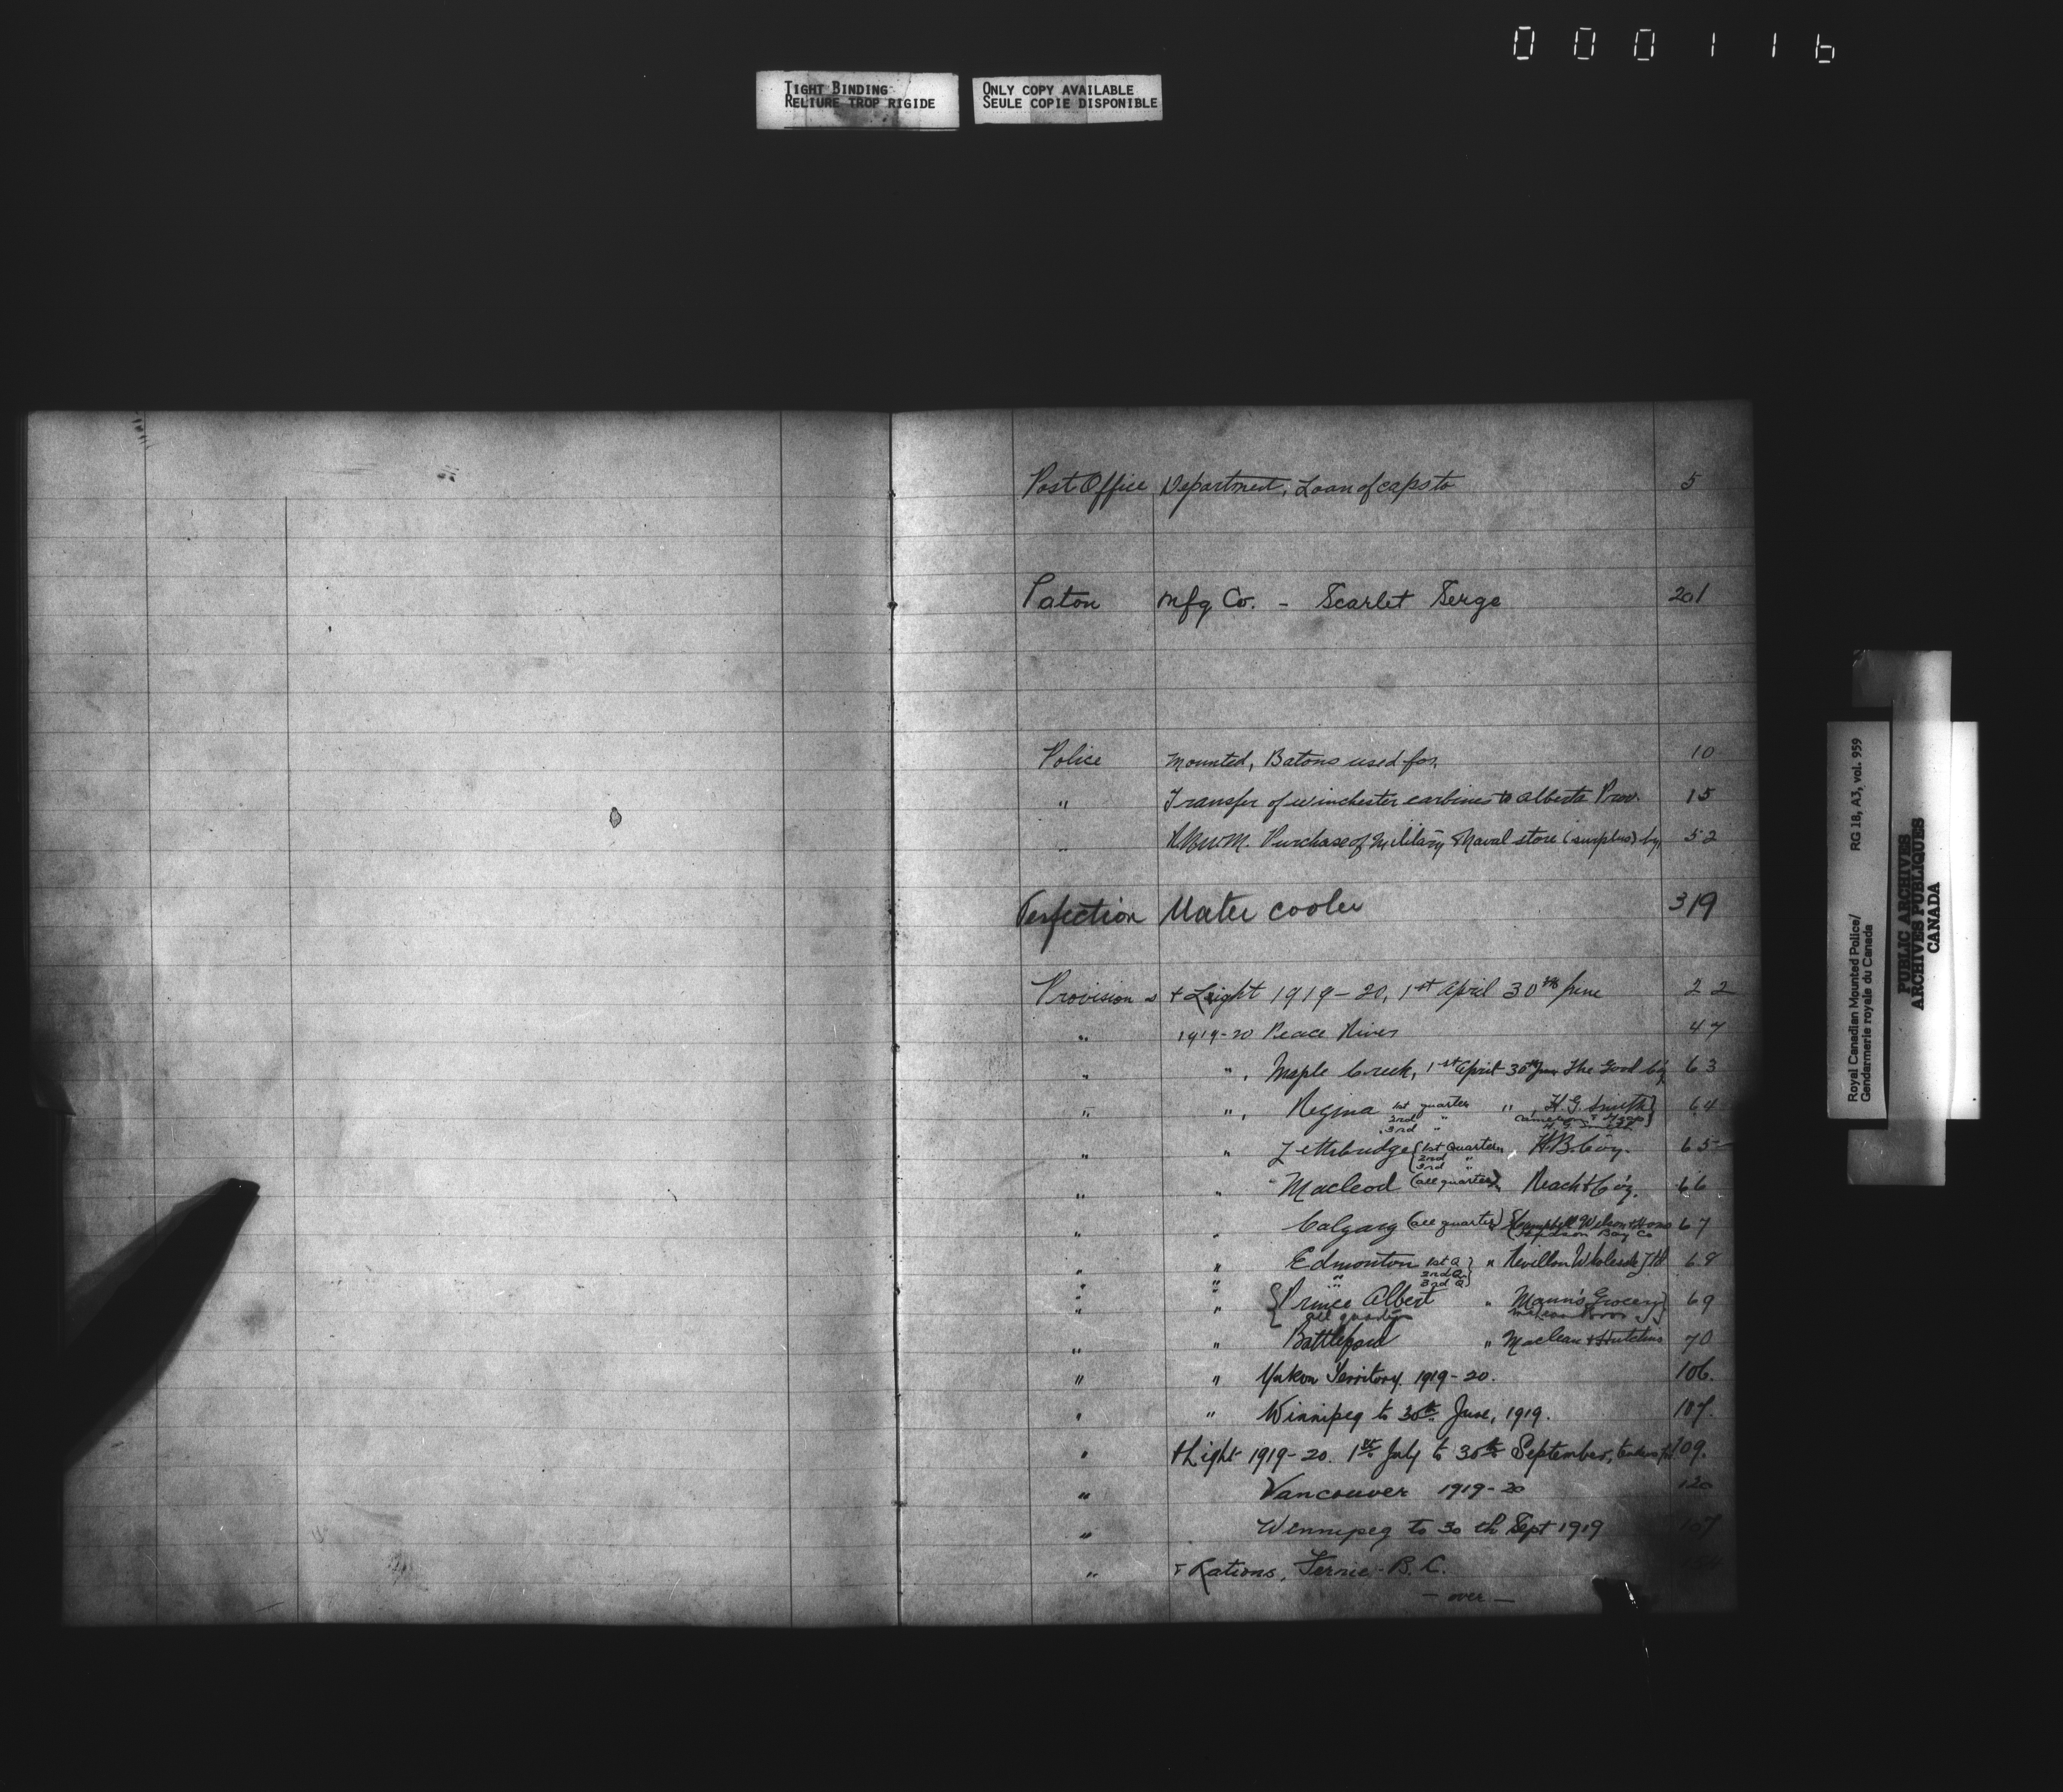 000116
TIGHT BINDING
RELIURE TROP RIGIDE
ONLY COPY AVAILABLE
SEULE COPIE DISPONIBLE
Post Office Department, Loan of caps to 5
Paton Mfg. Co. - Scarlet Serge 201
Police Mounted, Batons used for, 10
" Transfer of winchester carbines to Alberta Prov. 15
" R.N.W.M. Purchase of Military & Naval store (surplus) by, 52
Perfection Water cooler 319
Provisions + Light 1919-20, 1st April 30th June 22
" 1919-20 Peace River 47
" ", Maple Creek, 1st April 30th June 63
" ", Regina 1st quarter ", H.G. Smith} 64
2nd "
3rd " H. G. Smith
" " Lethbridge {1st Quarter, H.B. Co'y. 65
2nd "
3rd "
" " Macleod (all quarters), Reach & Co'y. 66
" " Calgary (all quarters) {Campbell Wilson & Horne 67
Hudson Bay Co
" " Edmonton 1st Q} " Revillon Wholesale Ltd 68
" " " 2nd Q
" " 3rd Q}
" " {Prince Albert " Mann's Grocery} 69
all quarters
" " Battleford " Maclean & Hutchins 70
" " Yukon Territory. 1919-20. 106.
" " Winnipeg to 30th June, 1919. 107.
" + Light 1919-20. 1st July to 30th September, 109.
" Vancouver 1919-20 120
" Winnipeg to 30th Sept 1919 107
" + Rations, Fernie, B.C.
- over -
Royal Canadian Mounted Police/ RG 18, A3, vol. 959
Gendarmerie royale du Canada
PUBLIC ARCHIVES
ARCHIVES PUBLIQUES
CANADA